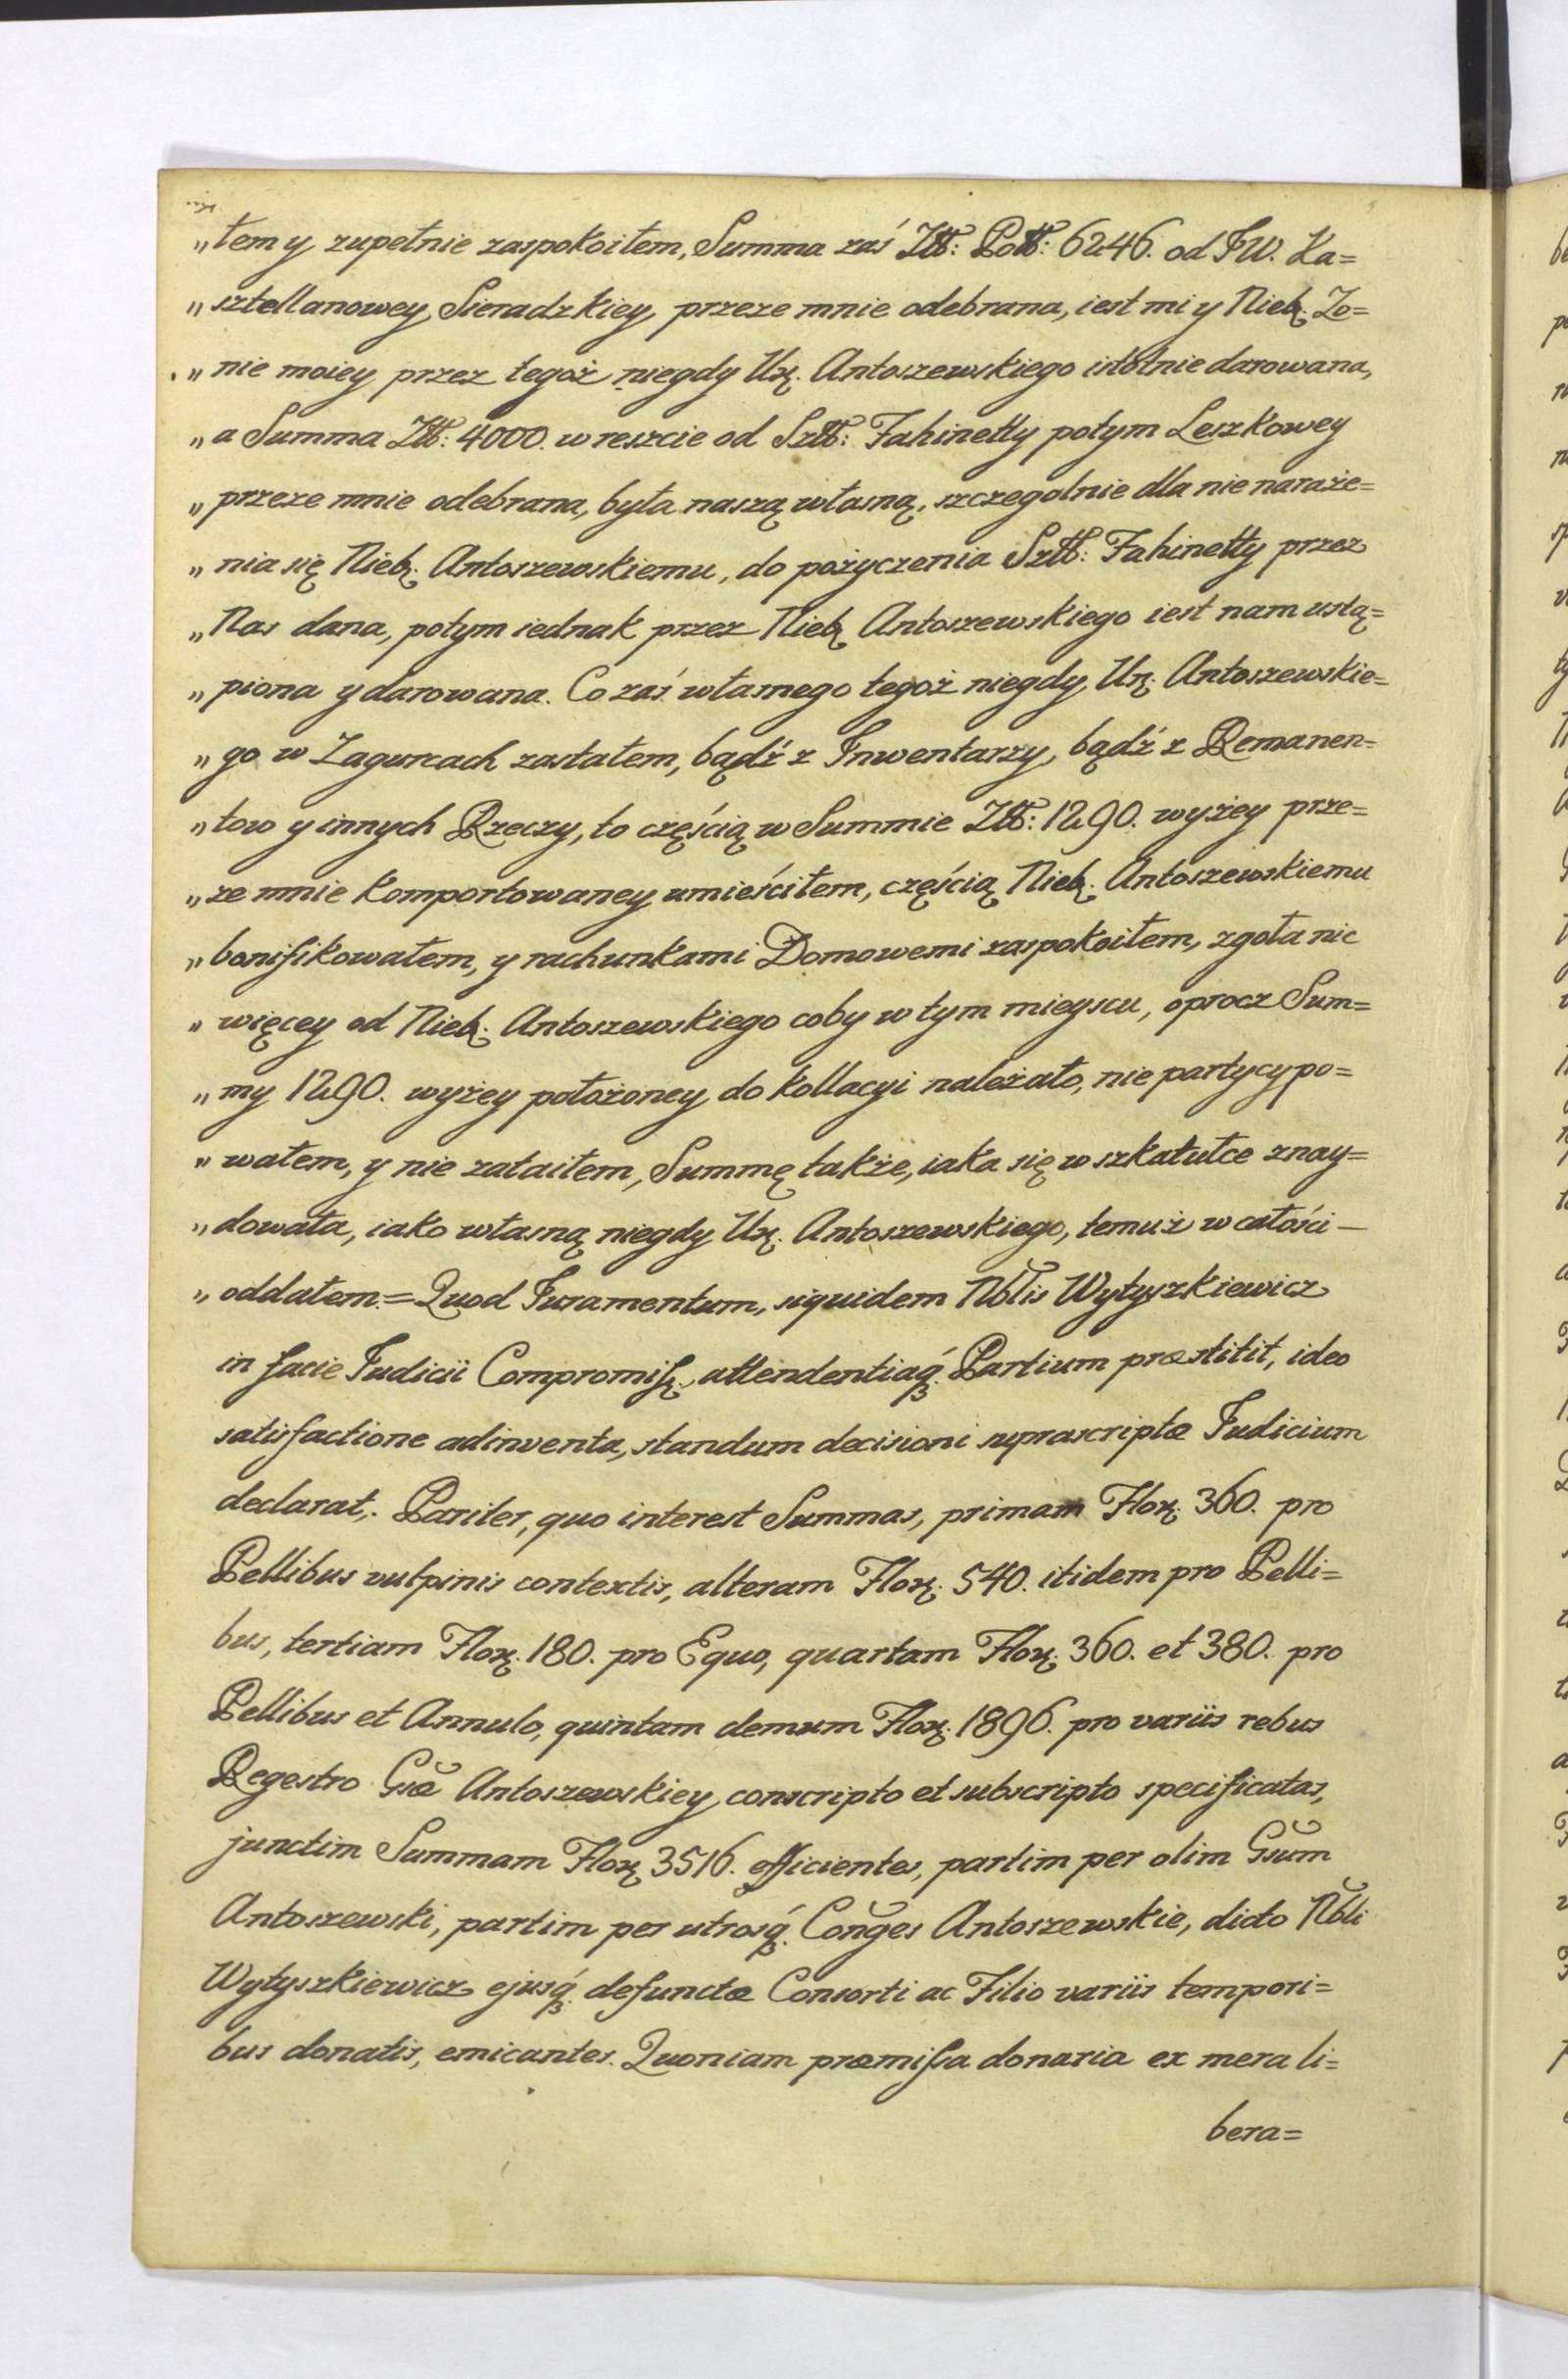 „tem y zupełnie zaspokoiłem, Summa zaś Złł: Poll: 6246. od JW. Ka=
„sztellanowey Sieradzkiey przeze mnie odebrana, iest mi y Nieb. Zo=
„nie moiey przez tegoż niegdy Ur. Antoszewskiego istotnie darowana,
„a Summa Złł: 4000. w reszcie od Szll: Fahinetty potym Leszkowey
„przeze mnie odebrana, była naszą własną, szczegolnie dla nie naraże=
„nia się Nieb. Antoszewskiemu, do pożyczenia Szll: Fahinetty przez
„Nas dana, potym iednak przez Nieb Antoszewskiego iest nam ustą=
„piona y darowana. Co zaś własnego tegoż niegdy Ur. Antoszewskie=
„go w Zagurcach zastałem, bądź z Inwentarzy, bądź z Remanen=
„tow y innych Rzeczy, to częścią w Summie Złł: 1290. wyżey prze=
„ze mnie komportowaney umieściłem, częścią Nieb. Antoszewskiemu
„bonifikowałem, y rachunkami Domowemi zaspokoiłem, zgoła nic
„więcey od Nieb. Antoszewskiego coby w tym mieyscu, oprocz Sum=
„my 1290. wyżey położoney do kollacyi należało, nie partycypo=
„wałem, y nie zataiłem, Summę także, iaka się w szkatułce znay=
„dowała, iako własną niegdy Ur. Antoszewskiego, temuż w całości —
„oddałem. = Quod Juramentum, siquidem Nblis Wytyszkiewicz
in facie Judicii Compromiss. attendentiaq. Partium præstitit, ideo
satisfactione adinventa, standum decisioni suprascriptæ Judicium
declarat. Pariter, quo interest Summas, primam Flor. 360. pro
Pellibus vulpinis contextis, alteram Flor. 540. itidem pro Pelli=
bus, tertiam Flor. 180. pro Equo, quartam Flor. 360. et 380. pro
Pellibus et Annulo, quintam demum Flor. 1896. pro variis rebus
Regestro Gsæ Antoszewskiey conscripto et subscripto specificatas,
junctim Summam Flor 3516. efficientes, partim per olim Gsum
Antoszewski, partim per utrosq. Conges Antoszewskie, dicto Nbli
Wytyszkiewicz ejusq. defunctæ Consorti ac Filio variis tempori=
bus donatis, emicantes. Quoniam præmissa donaria ex mera li=
bera=